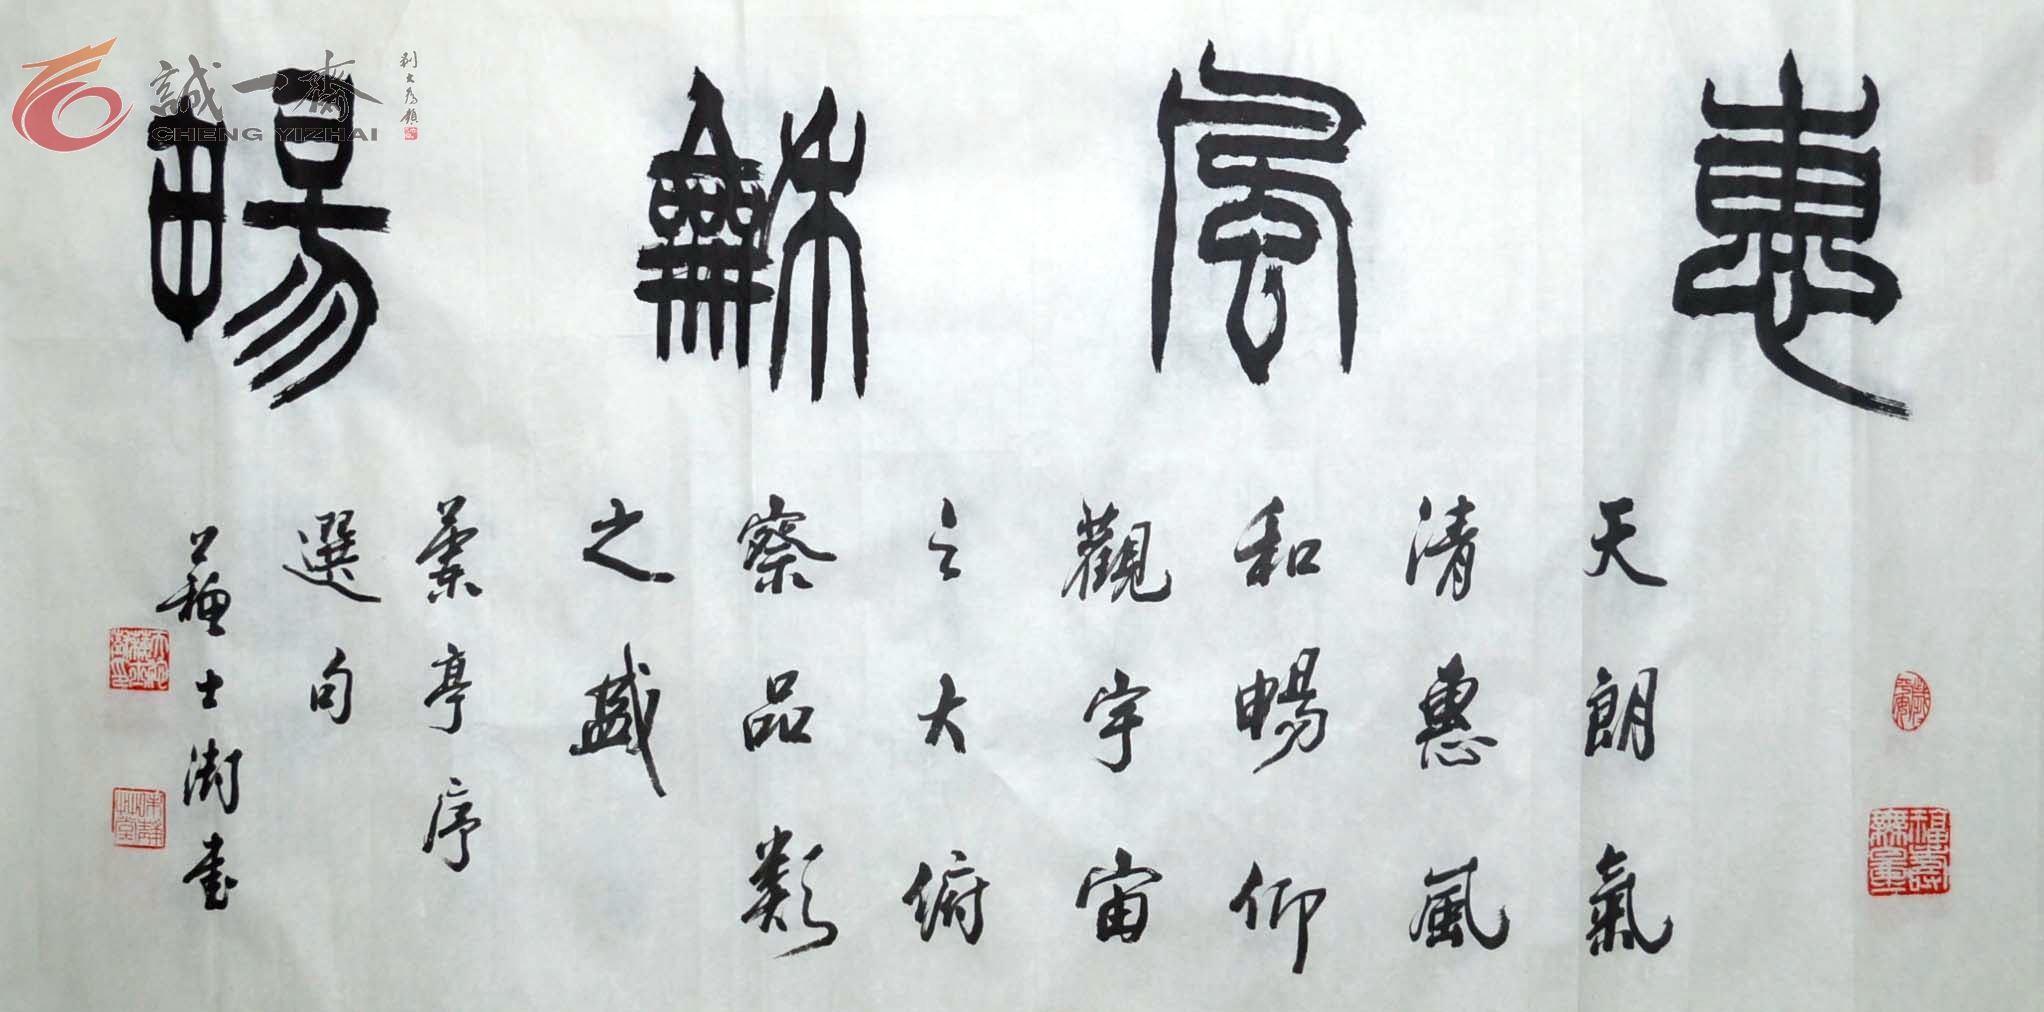 惠風龢暢
天朗氣
清惠風
和暢仰
觀宇宙
之大俯
察品類
之盛
蘭亭序
選句
蘇士澍書
福壽無量
誠一齋
CHENG YIZHAI